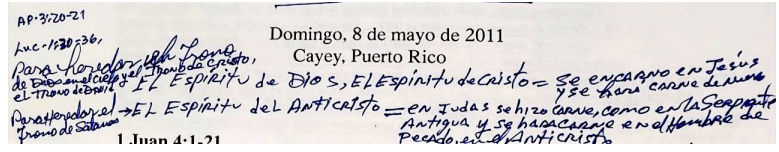 AP.3:20-21
Luc-1:30-36,
Domingo, 8 de mayo de 2011
Cayey, Puerto Rico
Para heredar, el Trono
de Dios en el cielo y el Trono de Cristo,
el Trono de David
EL ESPIRITU de DIOS, EL ESPIRITU de CRISTO = SE ENCARNO EN JESÚS
y se hara CARNE de nuevo
Para Heredar el → EL ESPIRITU del ANTICRISTO = EN JUDAS se hizo CARNE, COMO EN la SERPIENTE
Trono de Satanas
Antigua y se hara CARNE en el Hombre de
Pecado, en el Anticristo
1 Juan 4:1-21